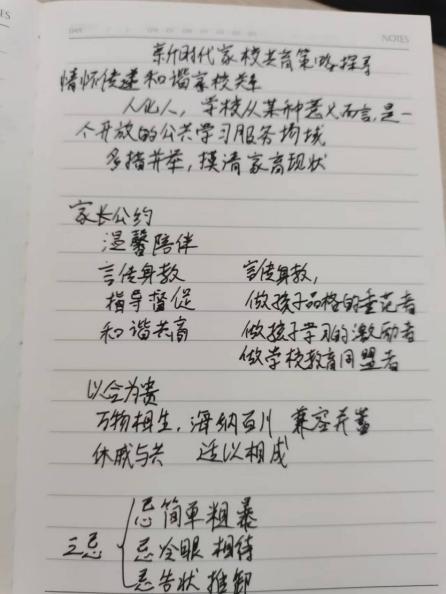 NOTES
新时代家校共育策略探寻
情怀传递 和谐家校关系
人化人，学校从某种意义而言，是一
个开放的公共学习服务场域
多措并举，摸清家育现状
家长公约
温馨陪伴
言传身教 言传身教，
指导督促 做孩子品格的垂范者
和谐共育 做孩子学习的激励者
做学校教育同盟者
以合为贵
万物相生，海纳百川 兼容并蓄
休戚与共 适以相成
三忌
忌简单粗暴
忌冷眼相待
忌告状推卸